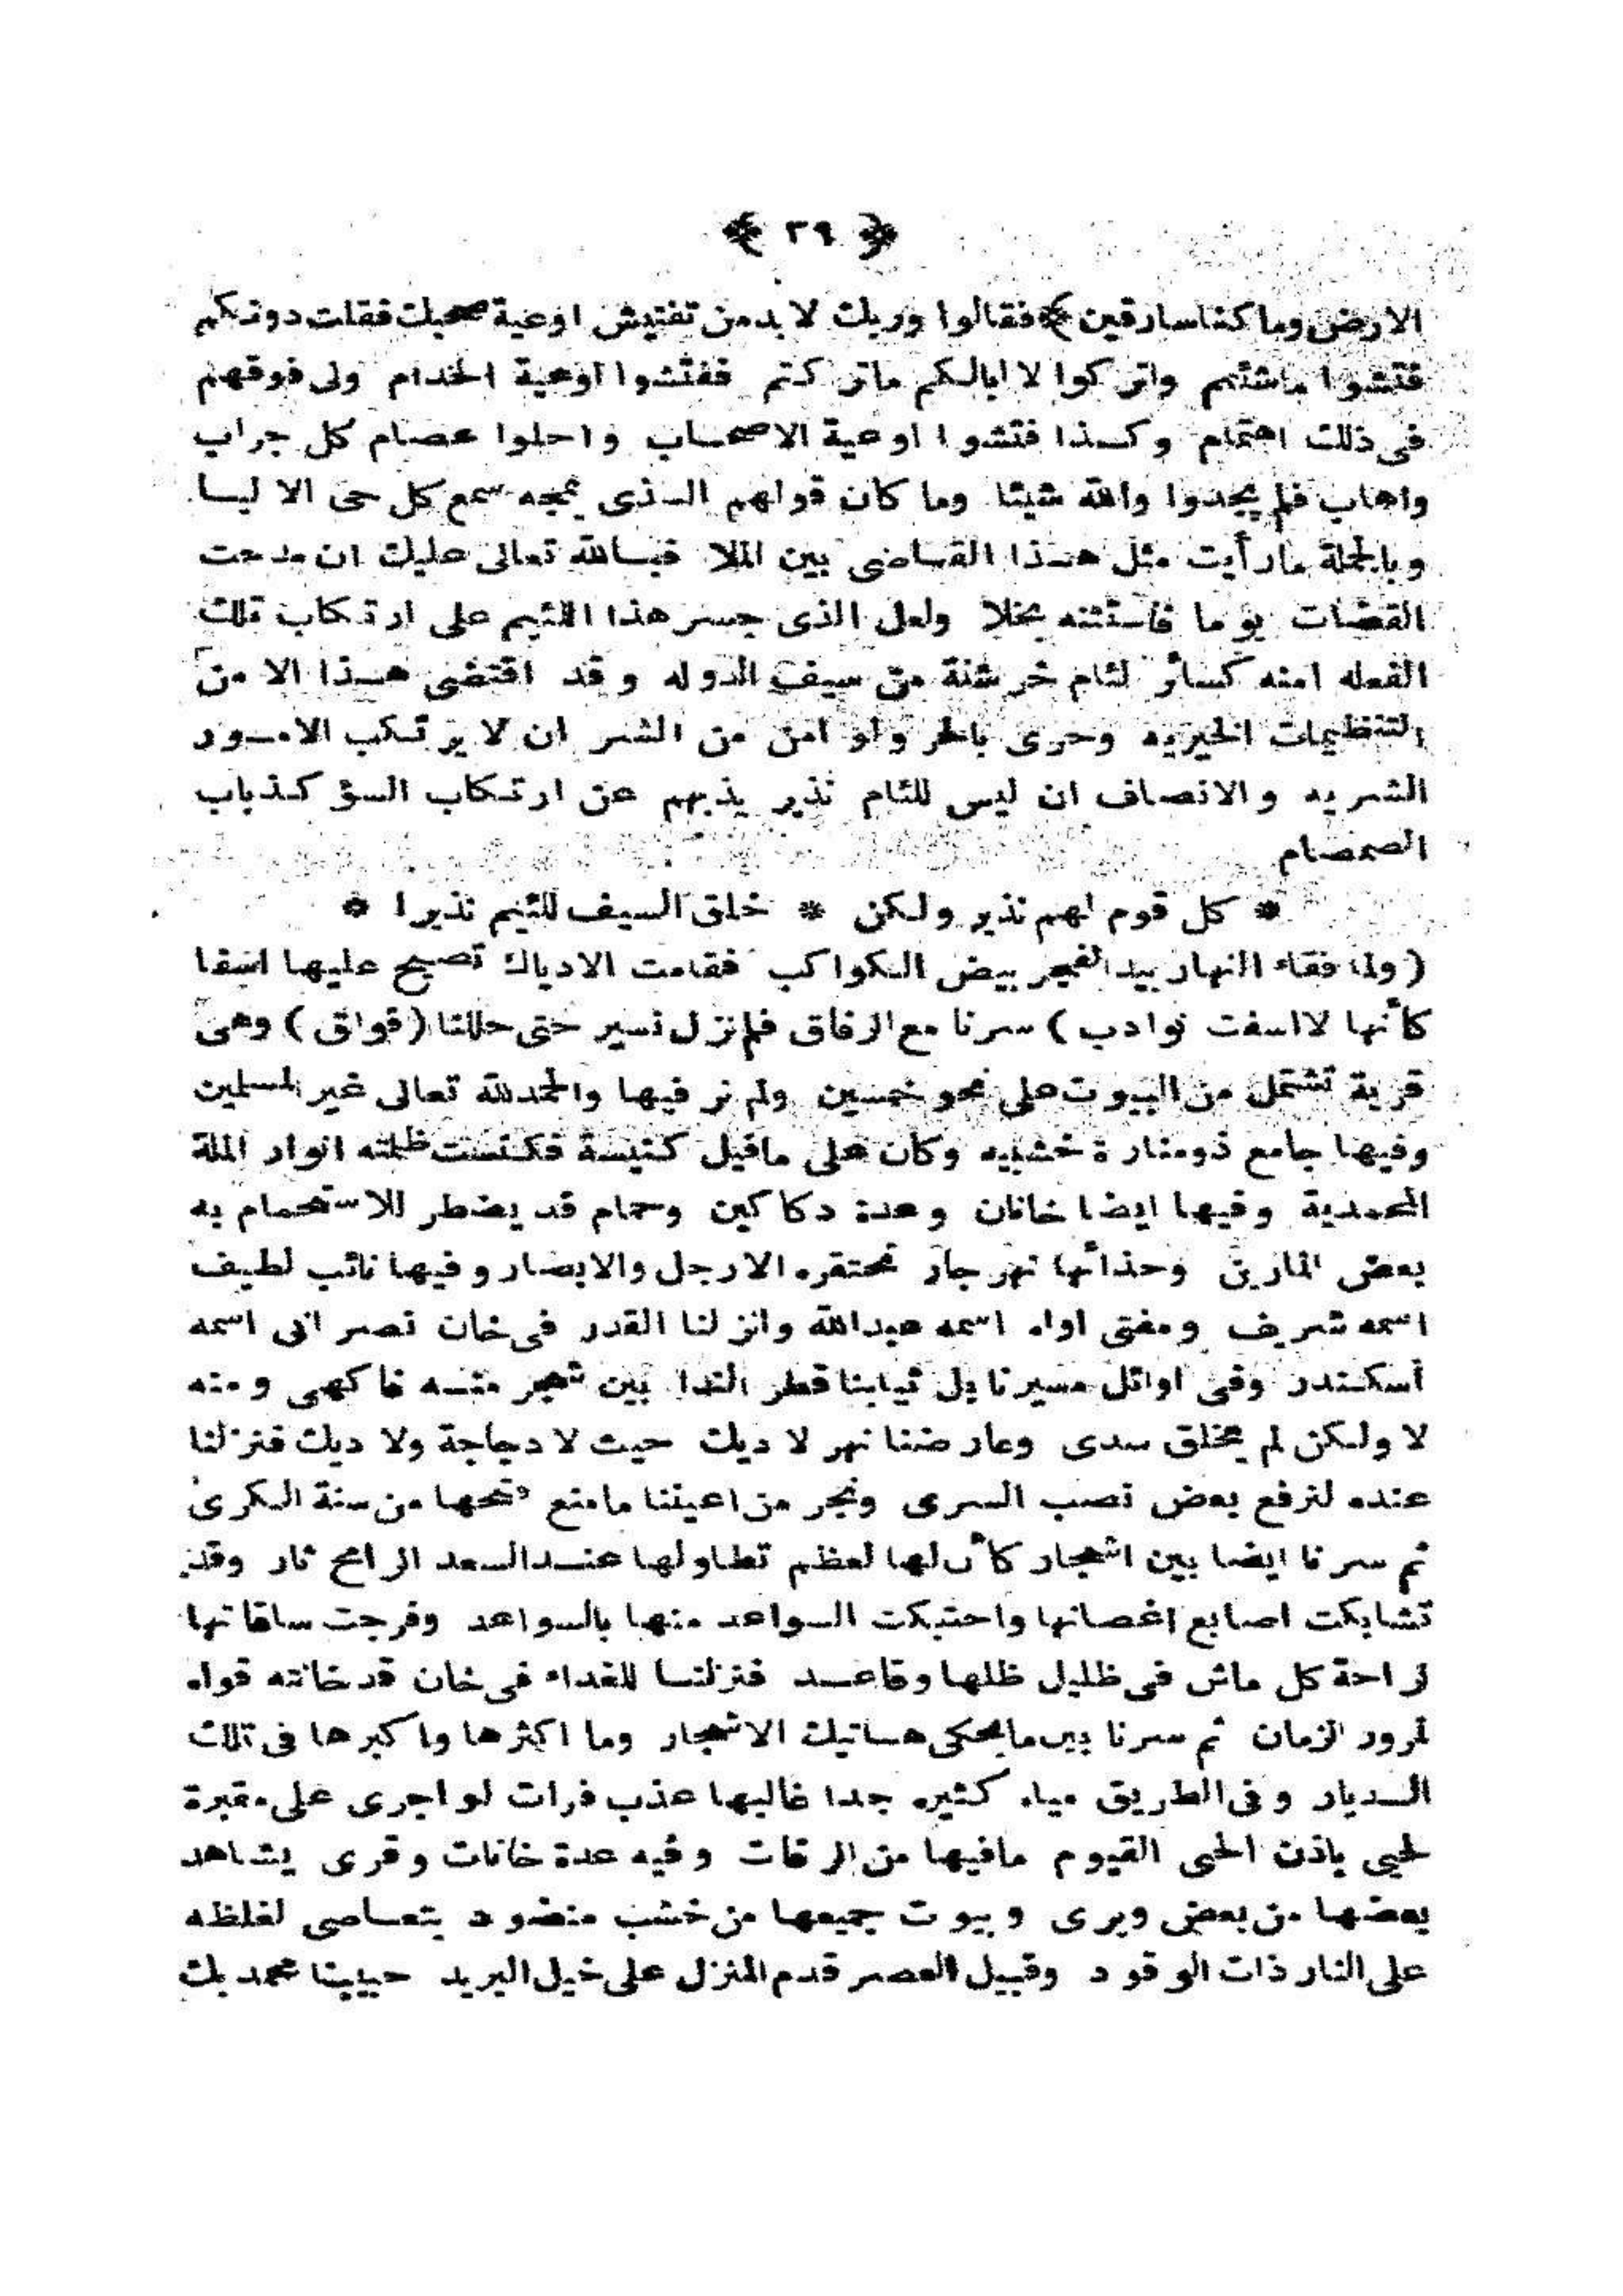 ﴿ ٣٩ ﴾
الارض وما كنا سارقين ﴾ فقالوا وربك لا بد من تفتيش اوعية صحبك فقلت دونكم
فتشوا ما شئتم واتركوا لا ابالكم ما تركتم ففتشوا اوعية الخدام ولى فوقهم
فى ذلك اهتمام وكذا فتشوا اوعية الاصحاب واحلوا عصام كل جراب
واهاب فلم يجدوا والله شيئا وما كان قولهم الذى يمجه سمع كل حى الا ليا
وبالجملة ما رأيت مثل هذا القاضى بين الملا فبالله تعالى عليك ان مدحت
القضات يوما فاستثنه بخلا ولعل الذى جسر هذا اللئيم على ارتكاب تلك
الفعله امنه كسائر لئام خرشنة من سيف الدوله وقد اقتضى هذا الا من
التنظيمات الخيريه وحرى بالحر ولو امن من الشر ان لا يرتكب الامور
الشريه والانصاف ان ليس للئام نذير يذبهم عن ارتكاب السؤ كذباب
الصمصام
* كل قوم لهم نذير ولكن * خلق السيف للئيم نذيرا *
( ولما فقاء النهار بيد الفجر بيض الكواكب فقامت الادياك تصيح عليها اسفا
كأنها لا اسفت نوادب ) سرنا مع الرفاق فلم نزل نسير حتى حللنا ( قواق ) وهى
قرية تشتمل من البيوت على نحو خمسين ولم نر فيها والحمد لله تعالى غير المسلمين
وفيها جامع ذو منارة خشبيه وكان على ما قيل كنيسة فكنست ظلمته انوار الملة
المحمدية وفيها ايضا خانان وعدة دكاكين وحمام قد يضطر للاستحمام به
بعض المارين وحذائها نهر جار تحتقره الارجل والابصار وفيها نائب لطيف
اسمه شريف ومفتى اواه اسمه عبدالله وانزلنا القدر فى خان نصر انى اسمه
أسكندر وفى اوائل مسيرنا بل ثيابنا قطر الندا بين شجر منه فاكهى ومنه
لا ولكن لم يخلق سدى وعارضنا نهر لا ديك حيث لا دجاجة ولا ديك فنزلنا
عنده لنرفع بعض نصب السرى ونجر من اعيننا ما منع فتحها من سنة الكرى
ثم سرنا ايضا بين اشجار كأن لها لعظم تطاولها عند السعد الرامح ثار وقد
تشابكت اصابع اغصانها واحتبكت السواعد منها بالسواعد وفرجت ساقاتها
لراحة كل ماش فى ظليل ظلها وقاعد فنزلنا للغداء فى خان قد خانته قواه
لمرور الزمان ثم سرنا بين ما يحكى هاتيك الاشجار وما اكثرها واكبرها فى تلك
الديار وفى الطريق مياه كثيره جدا غالبها عذب فرات لو اجرى على مقبرة
لحيى باذن الحى القيوم ما فيها من الرفات وفيه عدة خانات وقرى يشاهد
بعضها من بعض ويرى وبيوت جميعها من خشب منضود يتعاصى لغلظه
على النار ذات الوقود وقبيل العصر قدم المنزل على خيل البريد حبيبنا محمد بك